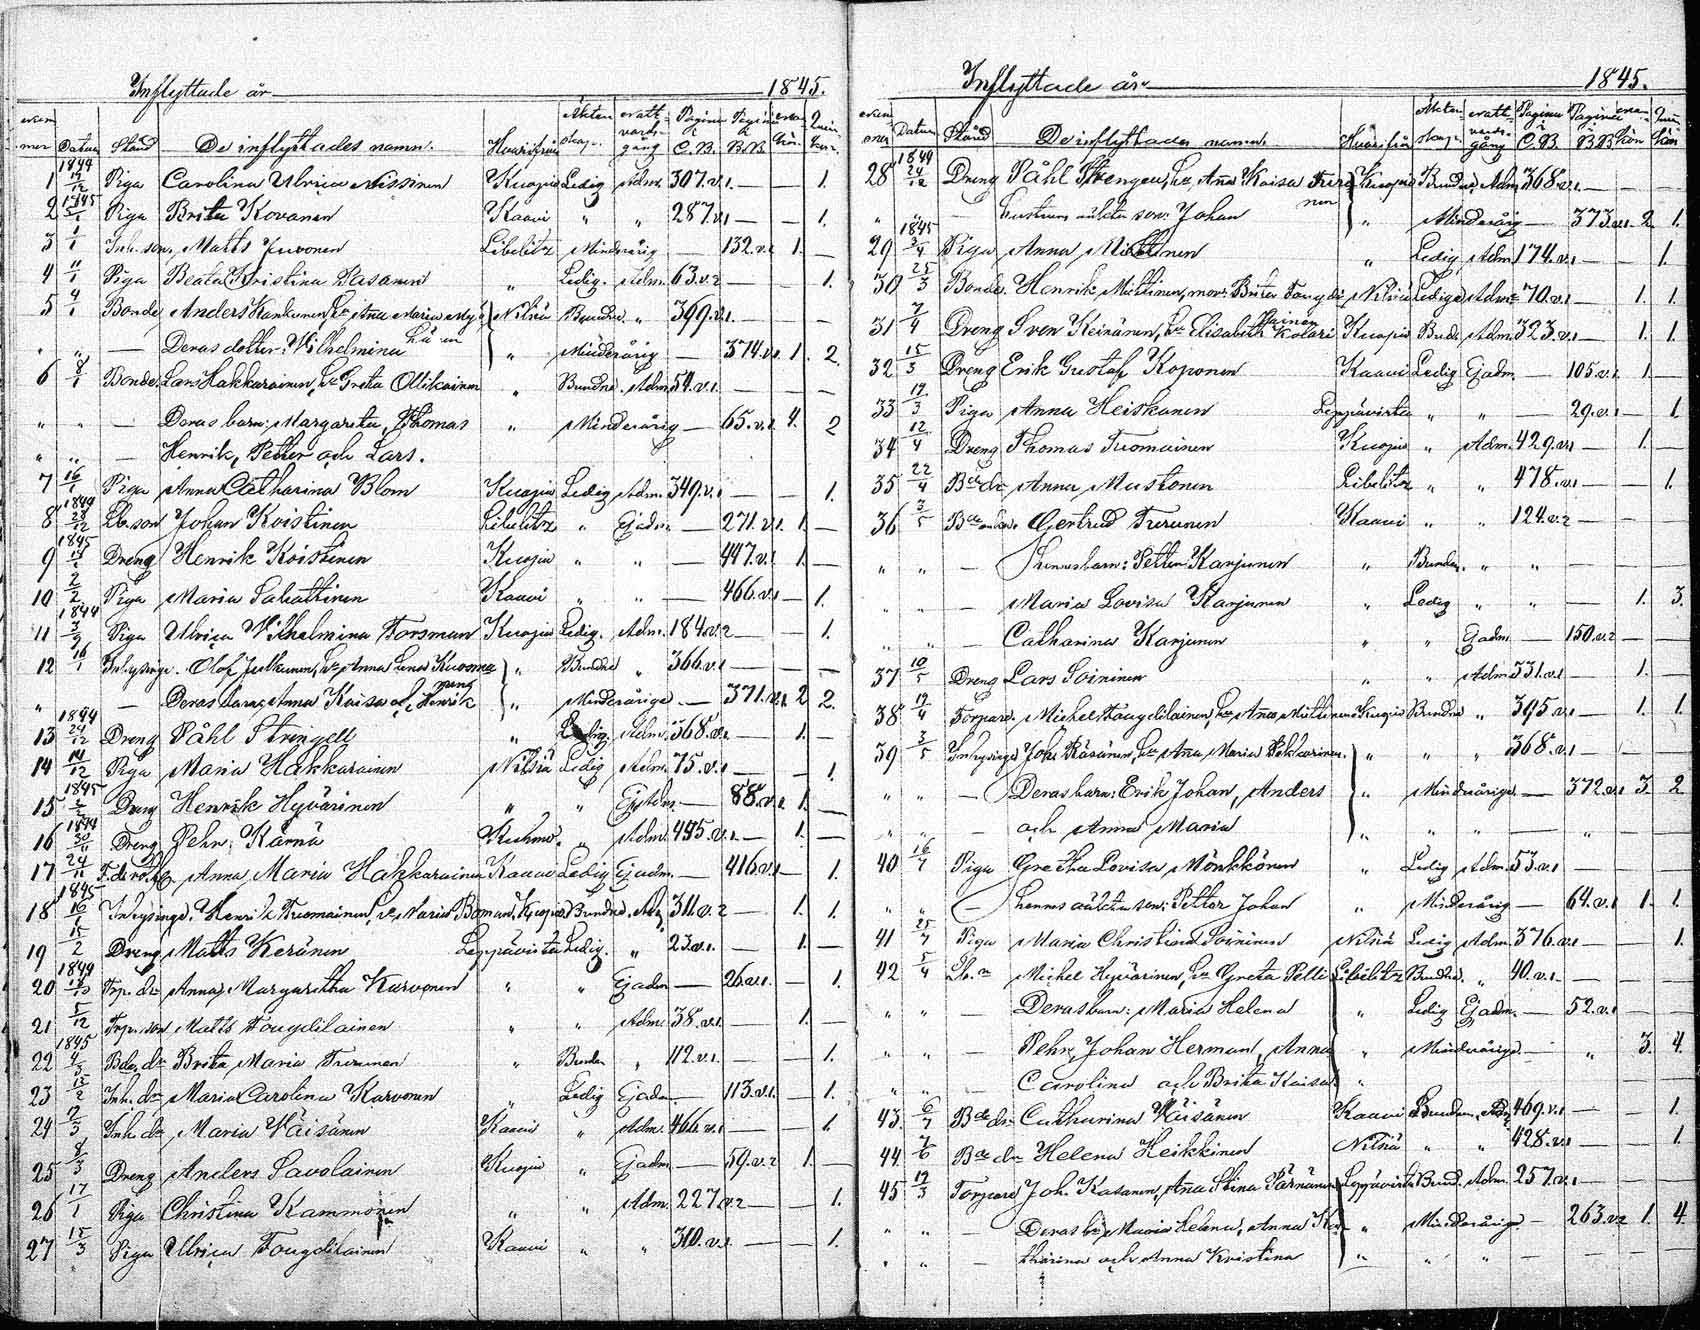 Inflyttade år 1845.
Num mer Datum Stånd De inflyttades namn. Hvarifrån Äkten skap. Nattvards gång Pagina i C.B. Pagina i B.B. Man kön. Quin kön.
1844
1 17/12 Piga Carolina Ulrica Nissinen Kuopio Ledig Adm. 307.v.1. — — 1.
1845
2 Piga Brita Kovanen Kaavi " " 287.v.1 — — 1.
3 1/1 Inh. son, Matts Juvonen Libelitz Minderårig — 132.v.2 1. —
4 11/1 Piga Beata Kristina Pasanen " Ledig. Adm. 63.v.2 — — 1.
5 4/1 Bonde, Anders Kankunen, h. Ana Maria " Nilsiä Bundne " 399.v.1. — — —
" " — Deras dotter: Vilhelmina " Minderårig — 374.v.1. 1. 2.
6 8/1 Bonde, Lars Hakkarainen, h. Greta Ollikainen " Bundne. Adm. 54.v.1. — — —
" " — Deras barn: Margareta, Thomas " Minderårig — 65.v.1. 4. 2
" " — Henrik, Petter och Lars.
7 16/1 Piga Anna Catharina Blom Kuopio Ledig Adm. 349.v.1 — — 1.
1844
8 28/12 Lb. son Johan Koistinen Libelitz " Ej adm. — 271.v.1. 1. —
1845
9 Dreng Henrik Koistinen Kuopio " " — 447.v.1 1. —
10 2/2 Piga Maria Sabattinen Kaavi " " — 466.v.1 — 1.
1844
11 Piga Ulrica Vilhelmina Forsman Kuopio Ledig. Adm. 184.v.2 — — 1.
12 16/1 Inhysinge. Olof Julkunen, h. Anna Lena Kuosma " Bundne " 366.v.1 — — —
" — Deras barn, Anna Kaisa och Henrik " Minderårige — 371.v.1 2 2.
1844
13 24/12 Dreng Påhl Strengell " Ledig. Adm. 368.v.2 — 1. —
14 14/12 Piga Maria Hakkarainen Nilsiä Ledig Adm. 75.v.1 — — 1.
1845
15 Dreng Henrik Hyvärinen " " Ej adm. — 88.v.2 1. —
1844
16 30/11 Dreng Pehr Kärnä Kuhmo. " Adm. 495.v.2. — 1. —
17 24/11 Anna Maria Hakkarainen Kaavi Ledig Ej adm. — 416.v.1 — 1.
1845
18 16/1 Inhysinge. Henrik Tuomainen, h. Maria Boman. Kuopio Bundne. Adm. 311.v.2 — 1. 1.
19 15/2 Dreng Matts Keränen Leppävirta Ledig. " 23.v.1. — 1. —
1844
20 Trp. dr Anna Margaretha Karvonen " " Ej adm — 26.v.1. — 1.
21 5/12 Trp. son Matts Tougdilainen " " Adm. 38.v.1. — 1. —
1845
22 4/3 Bde. dr Brita Maria Turunen " Bunden " 112.v.1. — — 1.
23 13/2 Inh. dr Maria Carolina Karvonen " Ledig Ej adm. — 113.v.1. — 1.
24 Inh. dr Maria Väisänen Kaavi " Adm. 466.v.1 — — 1
25 8/3 Dreng Anders Savolainen Kuopio " Ej adm. — 59.v.2 1. —
26 17/1 Piga Christina Kammonen " " Adm. 227.v.2 — — 1.
27 15/3 Piga Ulrica Tougdilainen Kaavi " " 310.v.1. — — 1.
Inflyttade år 1845.
Num mer Datum Stånd De inflyttades namn. Hvarifrån Äkten skap. Nattvards gång Pagina i C.B. Pagina i B.B. Man kön Quin kön
1844
28 24/12 Dreng Påhl Strengell, h. Ana Kaisa Turu nen Kuopio Bundne, Adm. 368.v.1 — — —
" — hustruns oäkta son: Johan " Minderårig — 373.v.1 2. 1.
1845
29 3/4 Piga Anna Miettinen " Ledig Adm. 174.v.1 — — 1.
30 25/3 Bonde. Henrik Miettinen, mor Brita Tougdi Nilsiä Ledige Adm. 70.v.1 — 1. 1.
31 7/4 Dreng Sven Keinänen, h. Elisabeth Kolari lainen Kuopio Bude Adm. 323.v.1 — 1. 1.
32 15/3 Dreng Erik Gustaf Koponen Kaavi Ledig Ej adm. — 105.v.1. 1. —
33 17/3 Piga Anna Heiskanen Leppävirta " " — 29.v.1 — 1.
34 12/4 Dreng Thomas Tuomainen Kuopio " Adm. 429.v.1 — 1. —
35 22/4 Bde dr Anna Mustonen Libelitz " " 478.v.1 — — 1.
36 3/5 Bde enka. Gertrud Turunen Kaavi " " 124.v.2 — — —
" " — Hennes barn: Petter Karjunen " Bunden. " " — — —
" " — Maria Lovisa Karjunen " Ledig " " — 1. 3.
" " Catharina Karjunen " " Ej adm. — 150.v.2 — —
37 10/5 Dreng Lars Soininen " " Adm. 331.v.1 — 1. —
38 19/4 Torpare. Michel Tougdilainen, h. Ana Miettinen Kuopio Bundne " 395.v.1 — 1. 1.
39 3/5 Inhysinge Joh. Räsänen, h. Ana Maria Pekkarinen. " " " 368.v.1 — — —
" " — Deras barn: Erik Johan, Anders " Minderårige. — 372.v.1 3. 2
" " — och Anna Maria " " " — " — —
40 16/7 Piga Gretha Lovisa Mönkkönen " Ledig Adm. 53.v.1 — — —
" " — hennes oäkta son: Petter Johan " Minderårig — 64.v.1 1. 1.
41 25/7 Piga Maria Christina Soininen Nilsiä Ledig Adm. 376.v.1 — — 1.
42 5/4 Lb. Michel Hyvärinen, h. Greta Pelli Libelitz Bundne. " 40.v.1 — — —
" " — Deras barn: Maria Helena " Ledig Ej adm. — 52.v.1 — —
" " — Pehr, Johan Herman, Anna " Minderårige — " 3. 4.
" " — Carolina och Brita Kaisa. "
43. 6/7 Bde dr. Catharina Väisänen Kaavi Bunden. Adm. 469.v.1 — — 1.
44 7/6 Bde dr Helena Heikkinen Nilsiä " " 428.v.1 — — 1.
45 Torpare Joh. Kasanen, Ana Stina Pärnänen Leppävirta Bund. Adm. 257.v.1 — — —
" " — Deras barn, Maria Helena, Anna Ka " Minderårige — 263.v.2 1. 4
" " — tharina och Anna Kristina " " " — — —